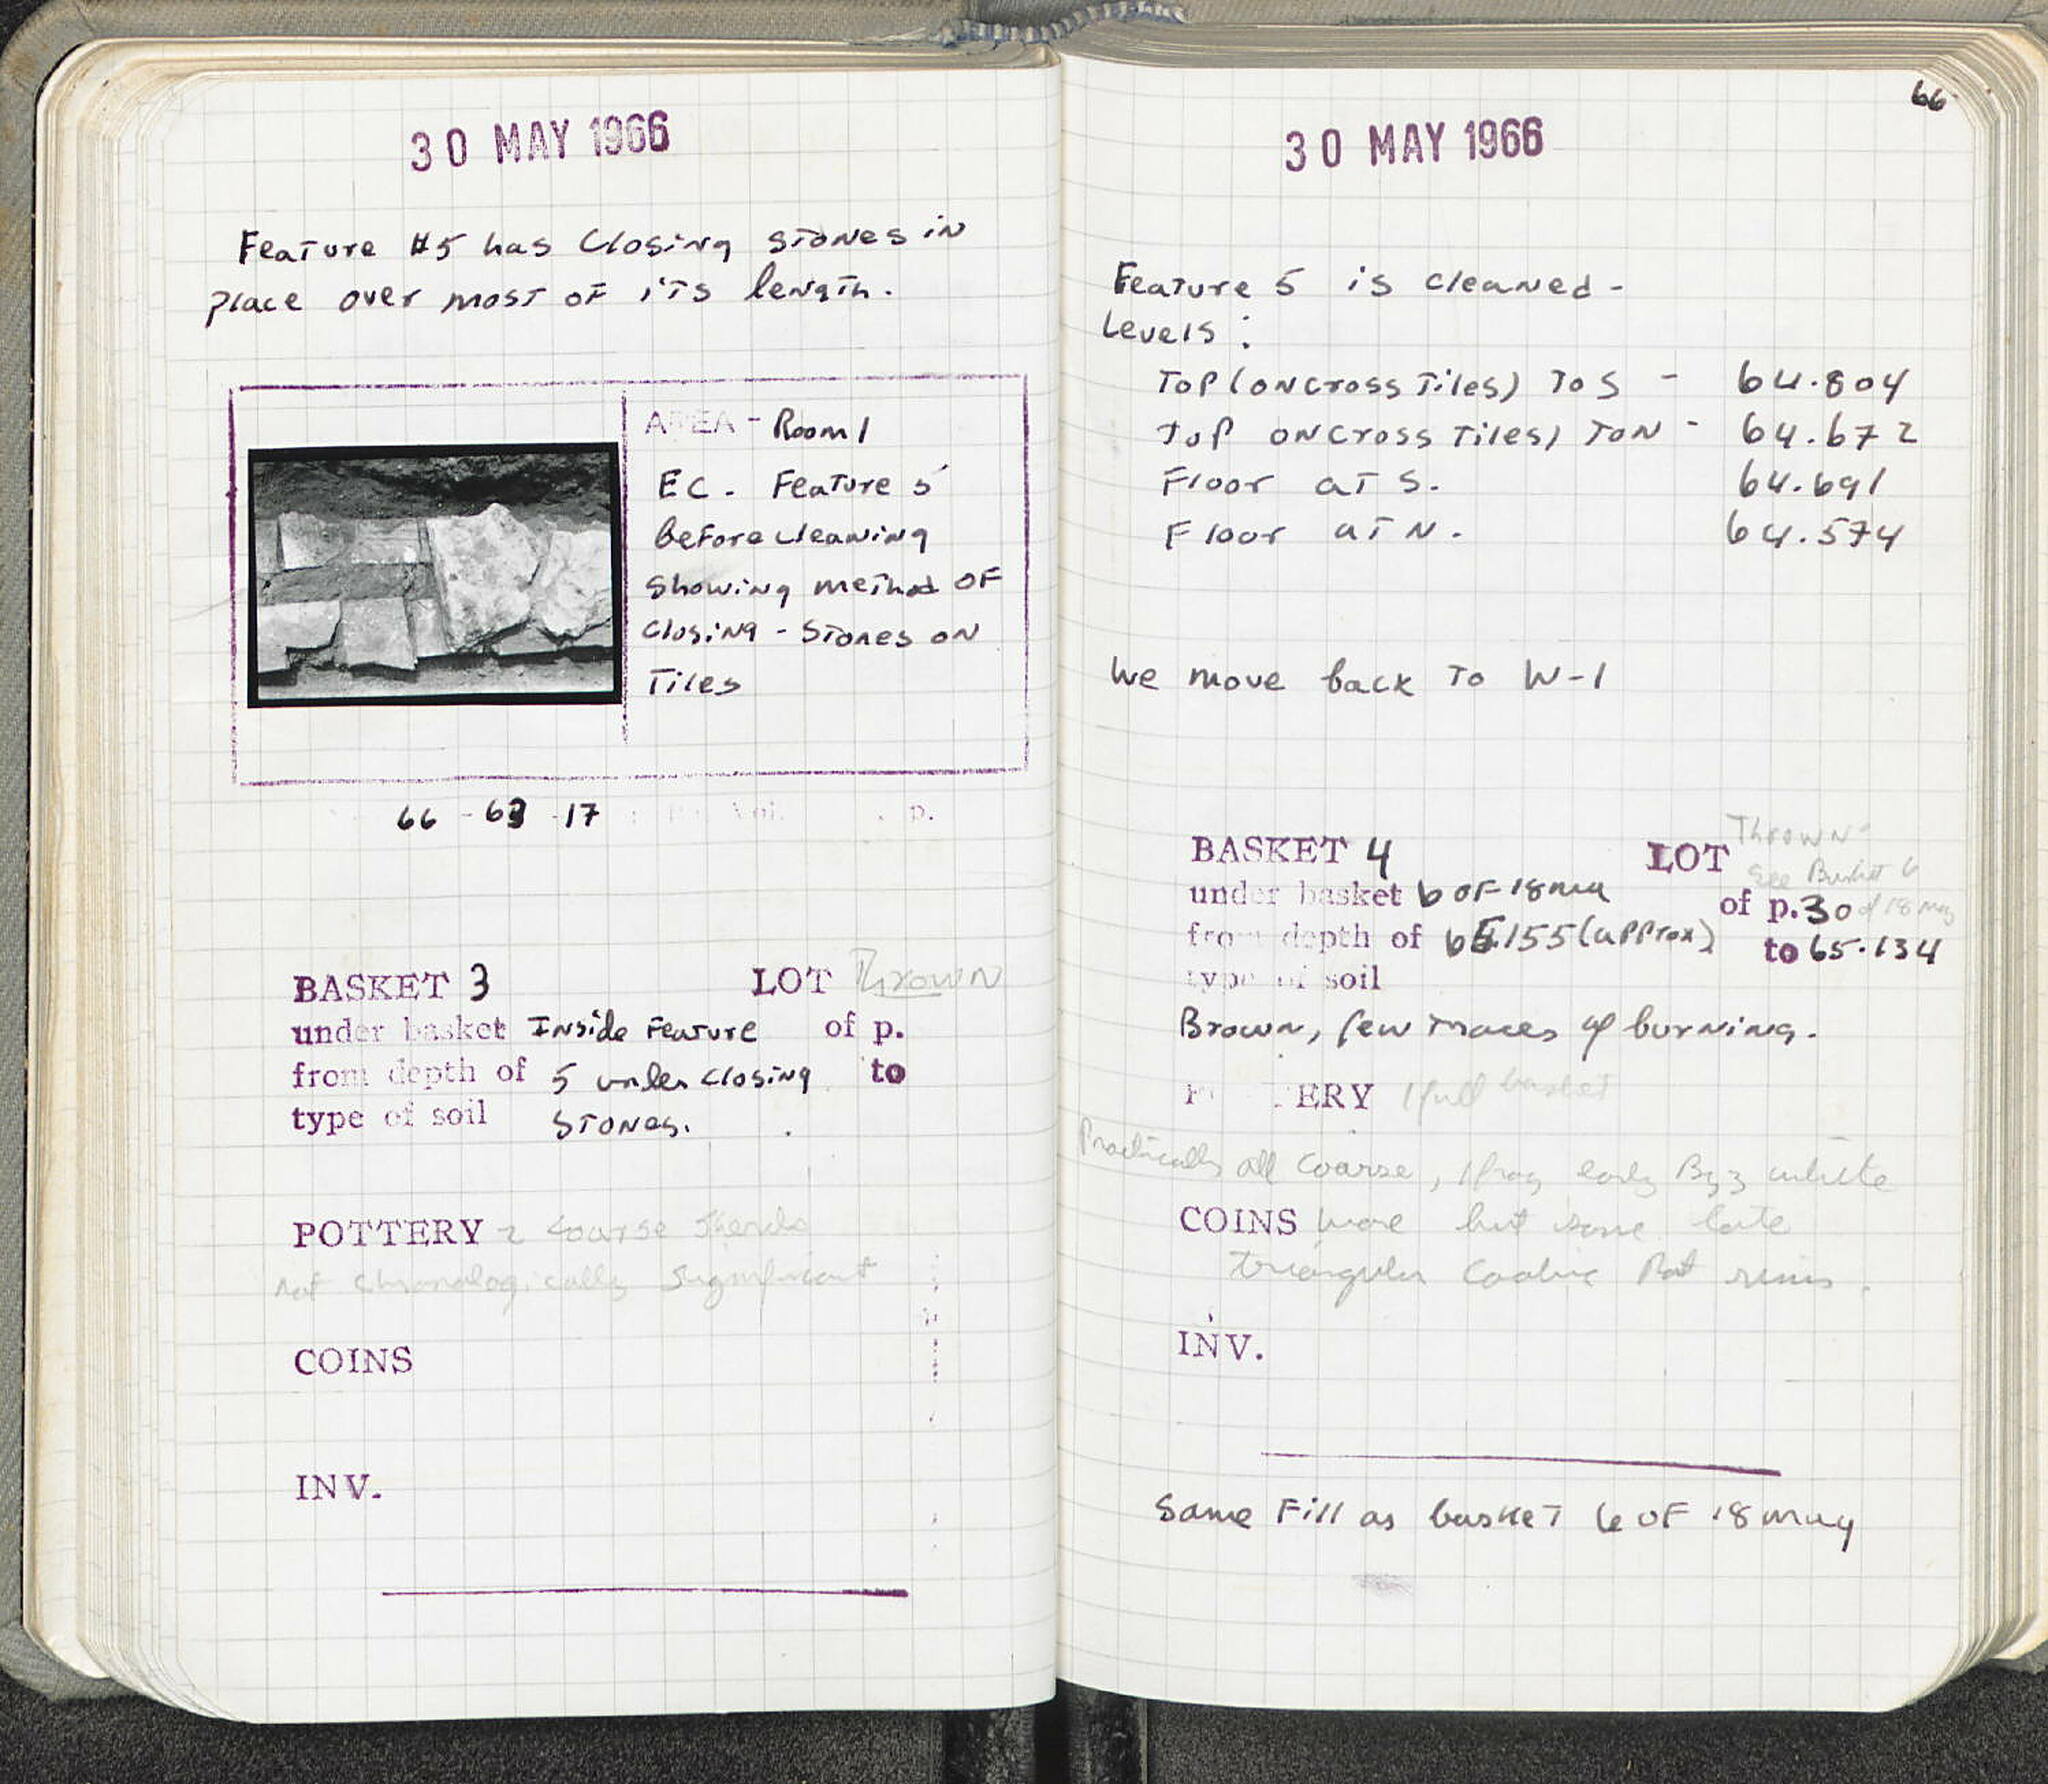 30 MAY 1966
Feature #5 has Closing stones in
place over most of its length.
AREA - Room 1
EC. Feature 5
before cleaning
showing method of
closing - stones on
Tiles
66 - 63 - 17 Vol. p.
BASKET 3 LOT Thrown
under basket Inside Feature of p.
from depth of 5 under closing to
type of soil stones.
POTTERY 2 coarse sherds
not chronologically significant
COINS
INV.
66
30 MAY 1966
Feature 5 is cleaned -
Levels :
Top (on cross tiles) To S - 64.804
Top on cross Tiles) To N - 64.672
Floor at S. 64.691
Floor at N. 64.574
We move back to W-1
Thrown -
BASKET 4 LOT See Basket 6
under basket 6 of 18 May of p. 30 of 18 May
from depth of 65.155 (approx) to 65.134
type of soil
Brown, few traces of burning.
POTTERY 1 full basket
Practically all coarse, 1 frag early Byz white
COINS ware but some late
triangular cooking Pot rims.
INV.
Same Fill as basket 6 of 18 May